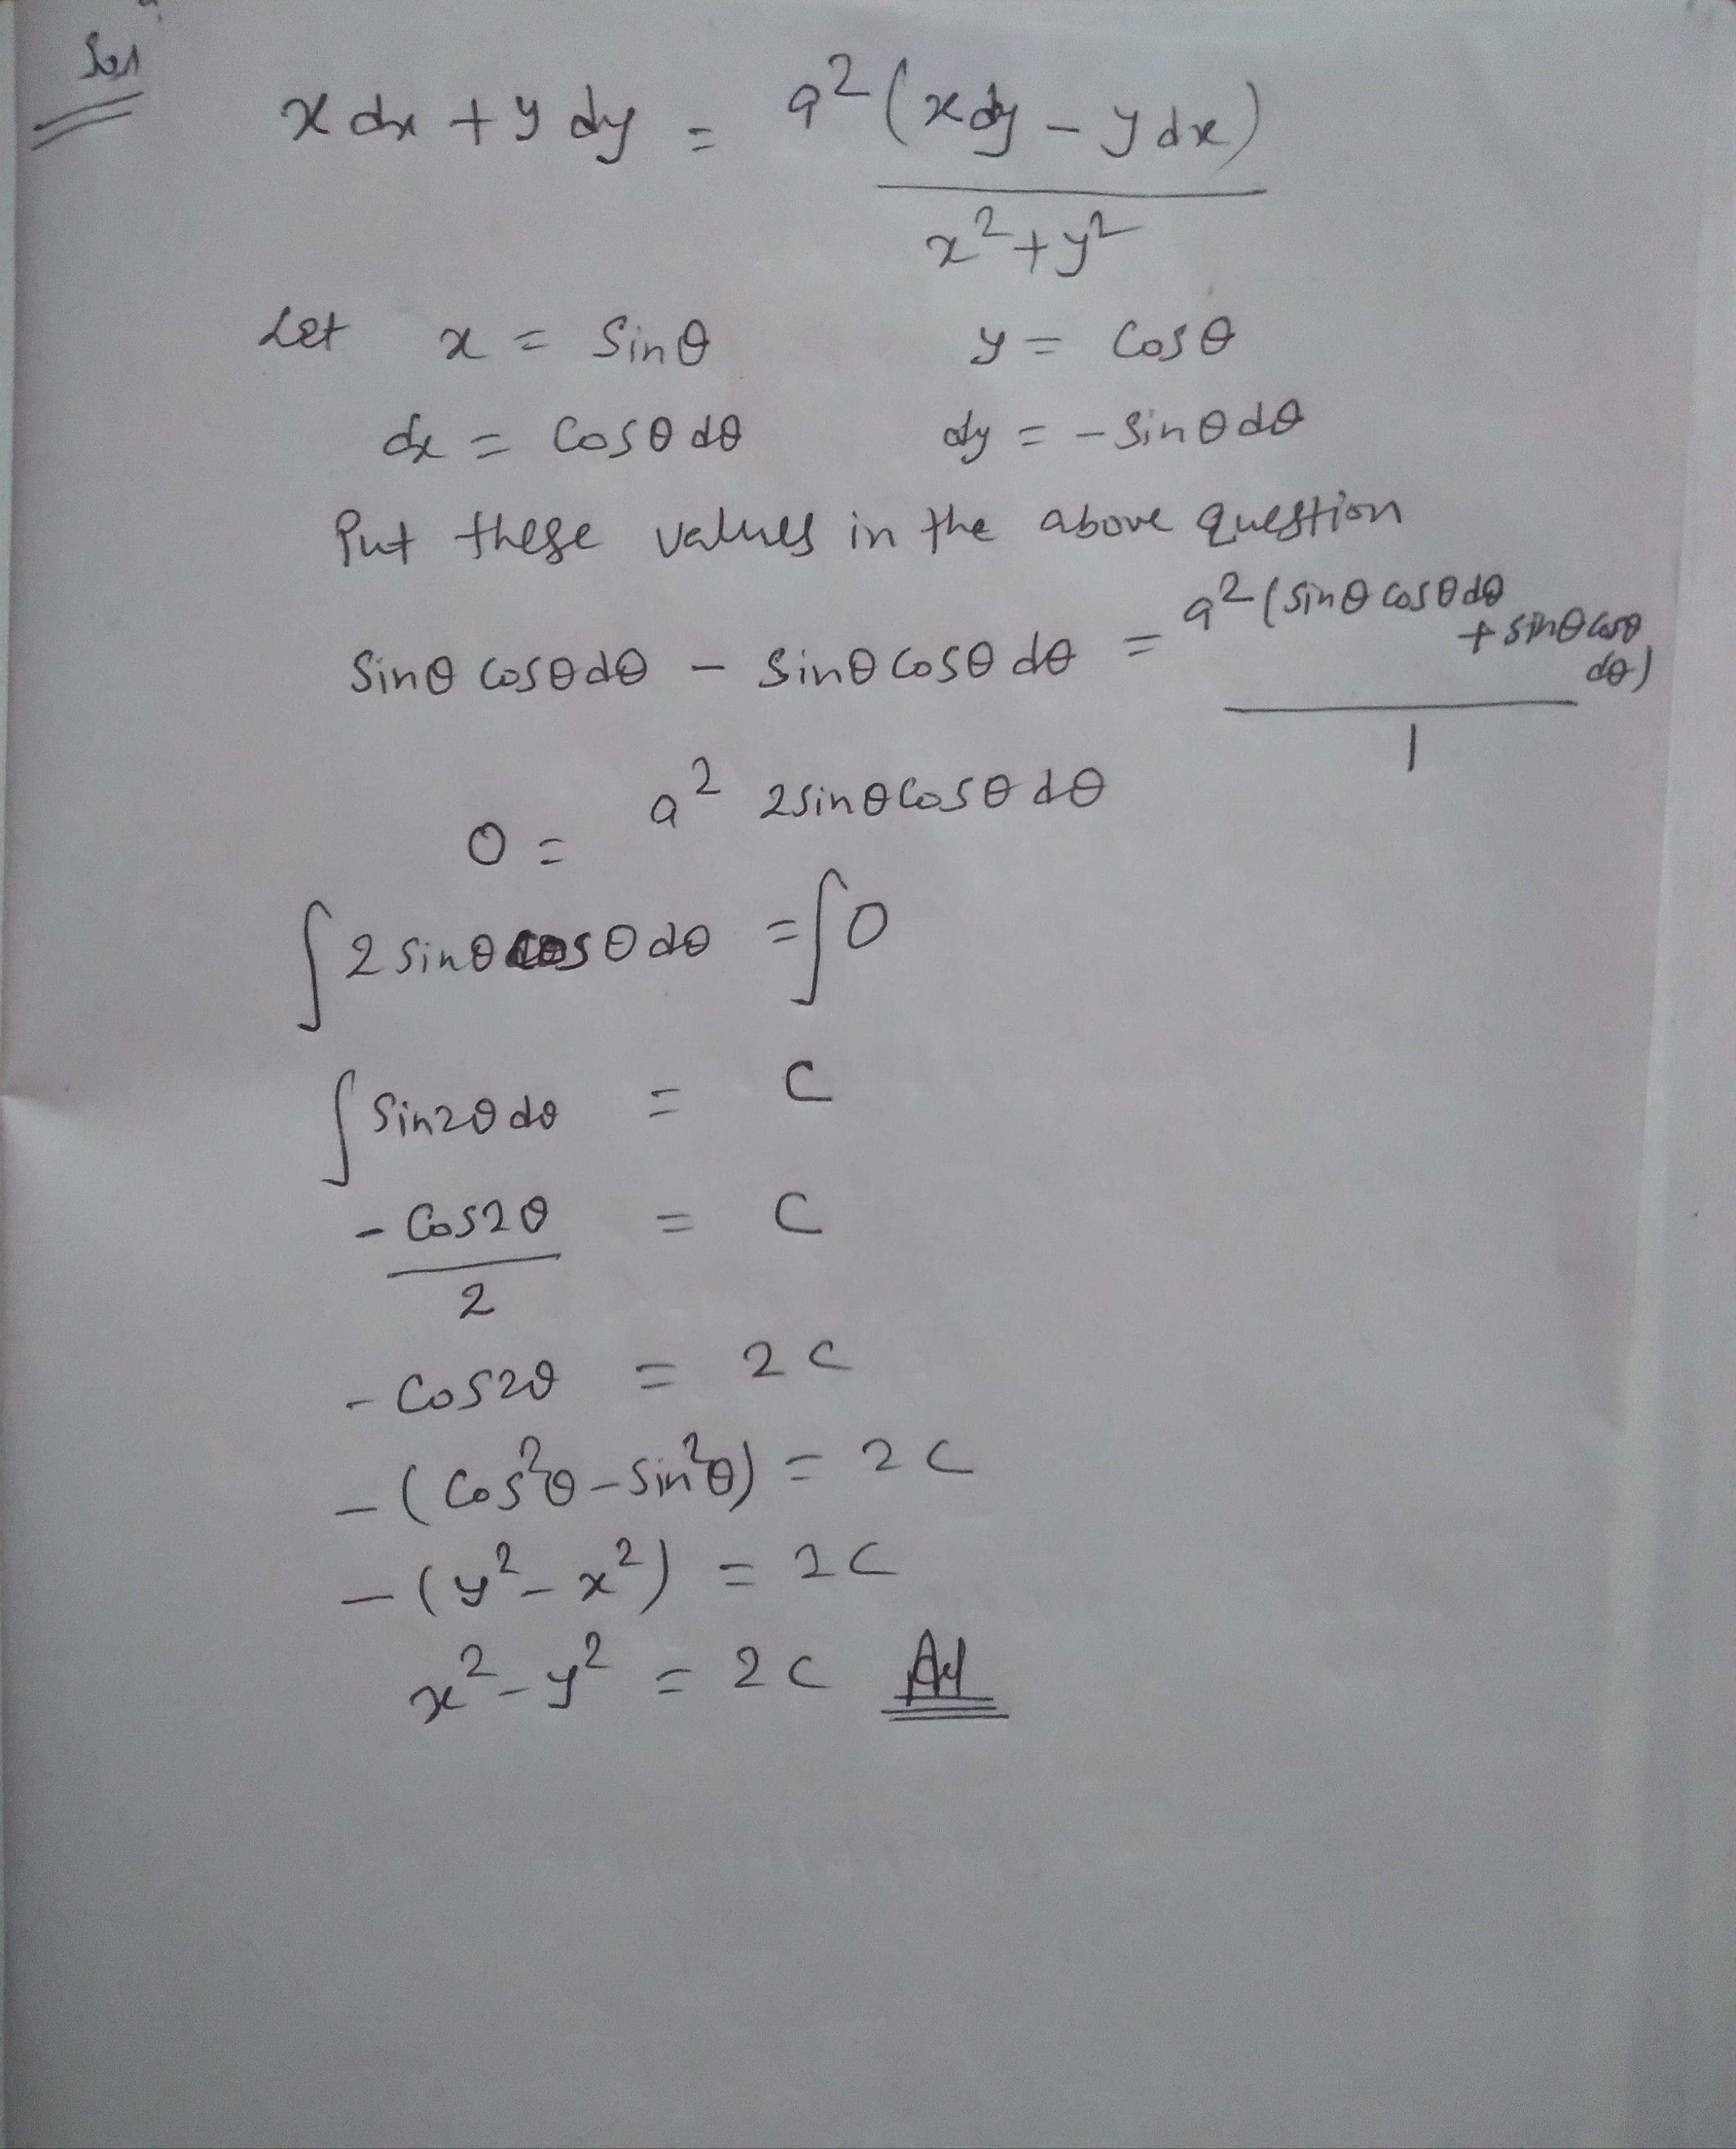 Sol
x dx + y dy = a² (x dy - y dx) / x² + y²
Let x = Sinθ y = Cosθ
dx = Cosθ dθ dy = - Sinθ dθ
Put these values in the above question
Sinθ Cosθ dθ - Sinθ Cosθ dθ = a² (Sinθ Cosθ dθ + Sinθ Cosθ dθ) / 1
0 = a² 2Sinθ Cosθ dθ
∫ 2 Sinθ Cosθ dθ = ∫ 0
∫ Sin2θ dθ = C
- Cos2θ / 2 = C
- Cos2θ = 2C
- (Cos²θ - Sin²θ) = 2C
- (y² - x²) = 2C
x² - y² = 2C